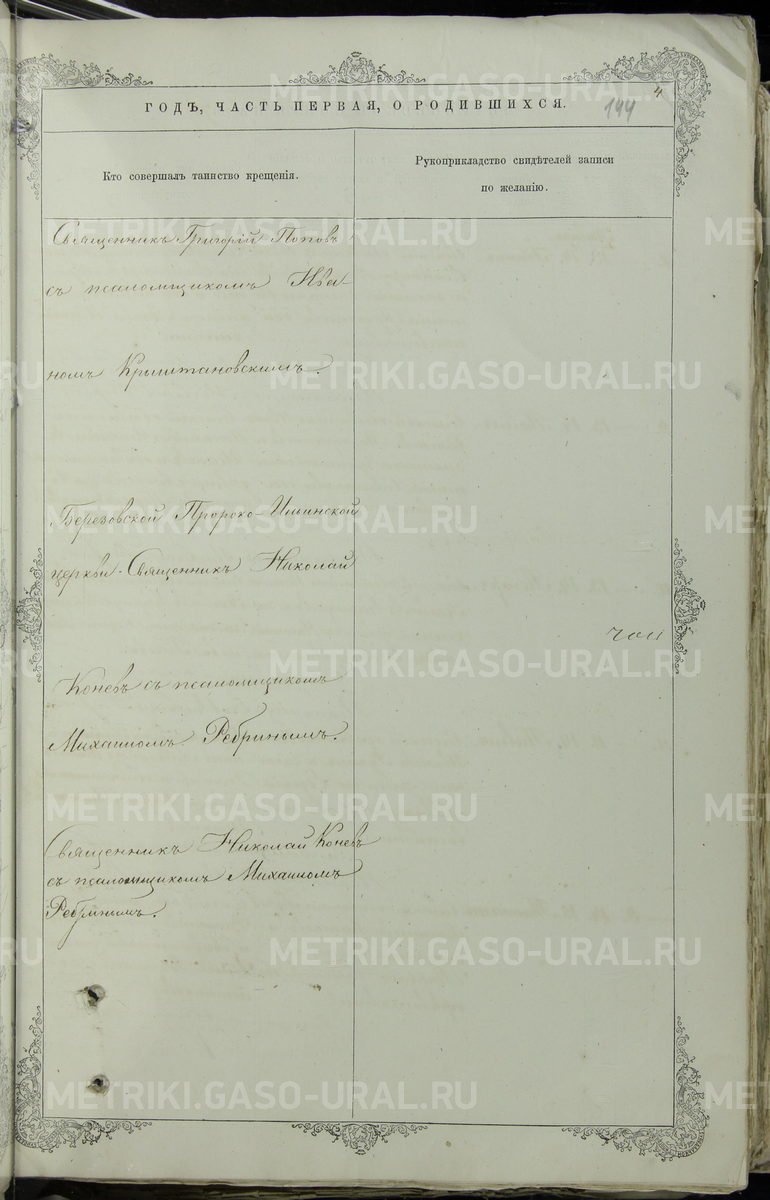 4
ГОДЪ, ЧАСТЬ ПЕРВАЯ, О РОДИВШИХСЯ.
144
Кто совершалъ таинство крещенія.
Рукоприкладство свидѣтелей записи
по желанію.
Священникъ Григорій Поповъ
съ псаломщикомъ Ива-
номъ Крыштановскимъ.
Березовской Пророко-Илинской
церкви Священникъ Николай
Коневъ съ псаломщикомъ
Михаиломъ Ребринымъ.
Священникъ Николай Коневъ
съ псаломщикомъ Михаиломъ
Ребринымъ.
METRIKI.GASO-URAL.RU